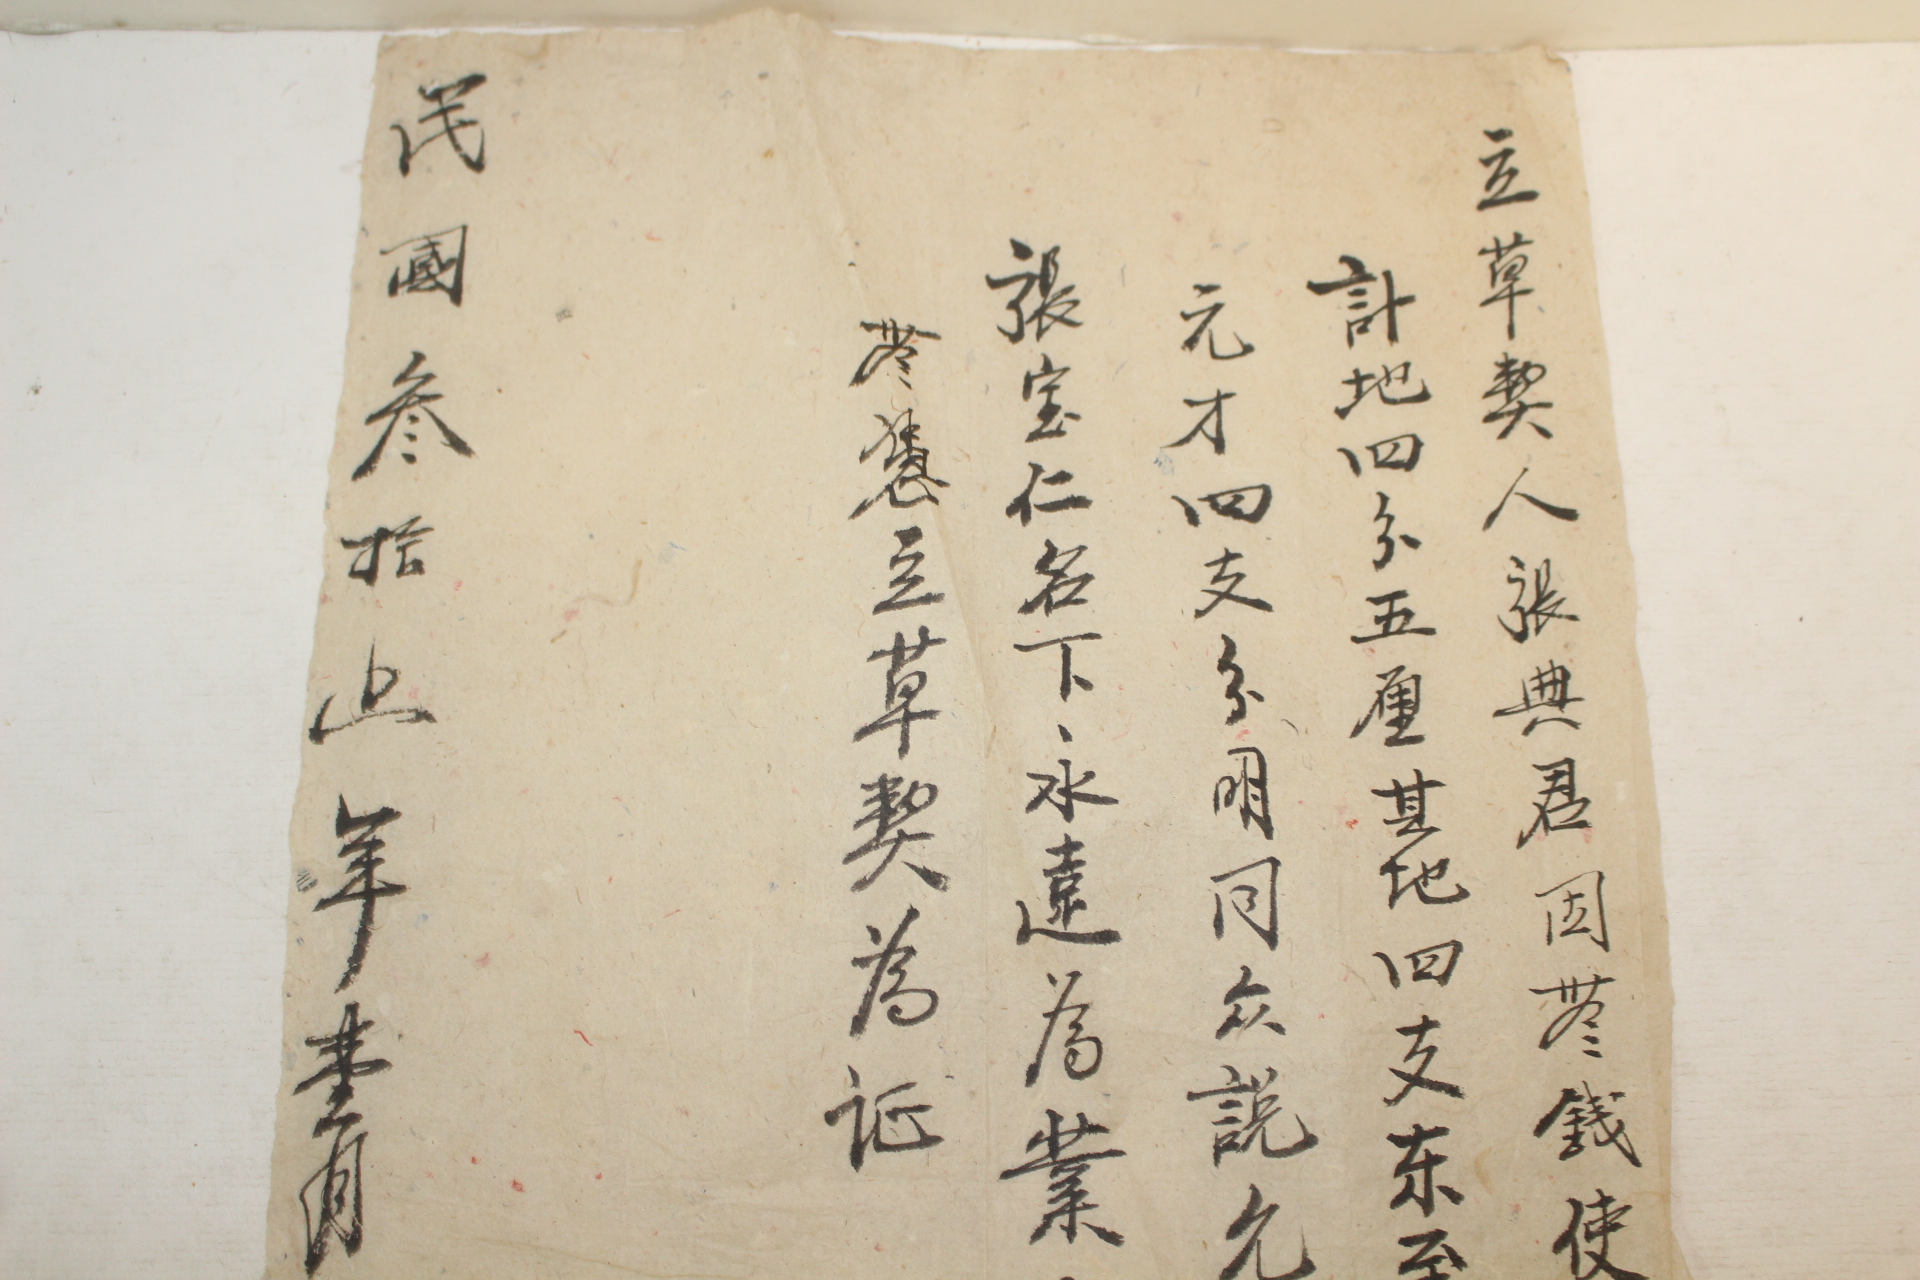 立草契人張典君因無錢使
計地四分五厘其地四支东至
元才四支分明同众説允
張宝仁名下永遠為業
無憑立草契為证
民國叁拾 年壹月